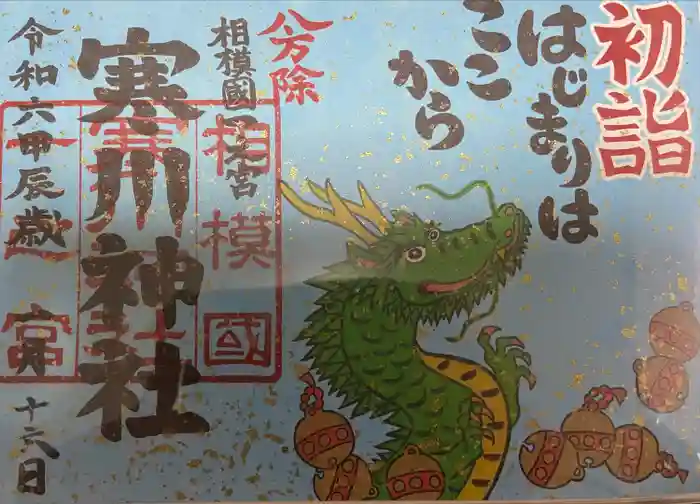 初詣
はじまりは
ここ
から
八方除
相模國一之宮
寒川神社
令和六甲辰歳
十六日
相模國